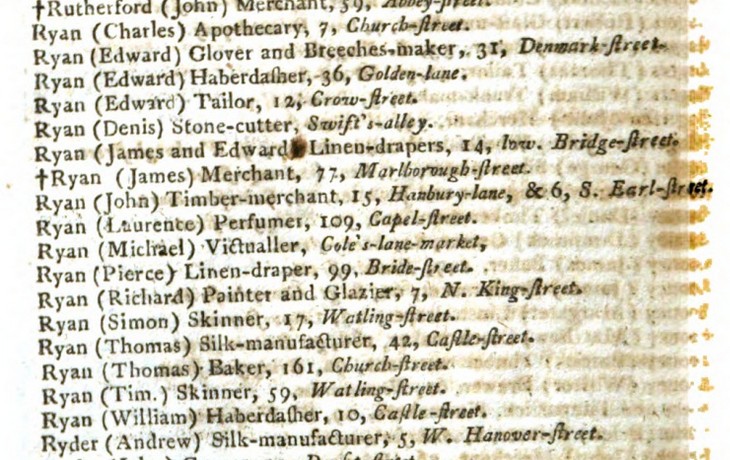 †Rutherford (John) Merchant, 59, Abbey-ſtreet.
Ryan (Charles) Apothecary, 7, Church-ſtreet.
Ryan (Edward) Glover and Breeches-maker, 31, Denmark-ſtreet.
Ryan (Edward) Haberdaſher, 36, Golden-lane.
Ryan (Edward) Tailor, 12, Crow-ſtreet.
Ryan (Denis) Stone-cutter, Swift's-alley.
Ryan (James and Edward) Linen-drapers, 14, low. Bridge-ſtreet.
†Ryan (James) Merchant, 77, Marlborough-ſtreet.
Ryan (John) Timber-merchant, 15, Hanbury-lane, & 6, S. Earl-ſtreet.
Ryan (Laurence) Perfumer, 109, Capel-ſtreet.
Ryan (Michael) Victualler, Cole's-lane-market,
Ryan (Pierce) Linen-draper, 99, Bride-ſtreet.
Ryan (Richard) Painter and Glazier, 7, N. King-ſtreet.
Ryan (Simon) Skinner, 17, Watling-ſtreet.
Ryan (Thomas) Silk-manufacturer, 42, Caſtle-ſtreet.
Ryan (Thomas) Baker, 161, Church-ſtreet.
Ryan (Tim.) Skinner, 59, Watling-ſtreet.
Ryan (William) Haberdaſher, 10, Caſtle-ſtreet.
Ryder (Andrew) Silk-manufacturer, 5, W. Hanover-ſtreet.